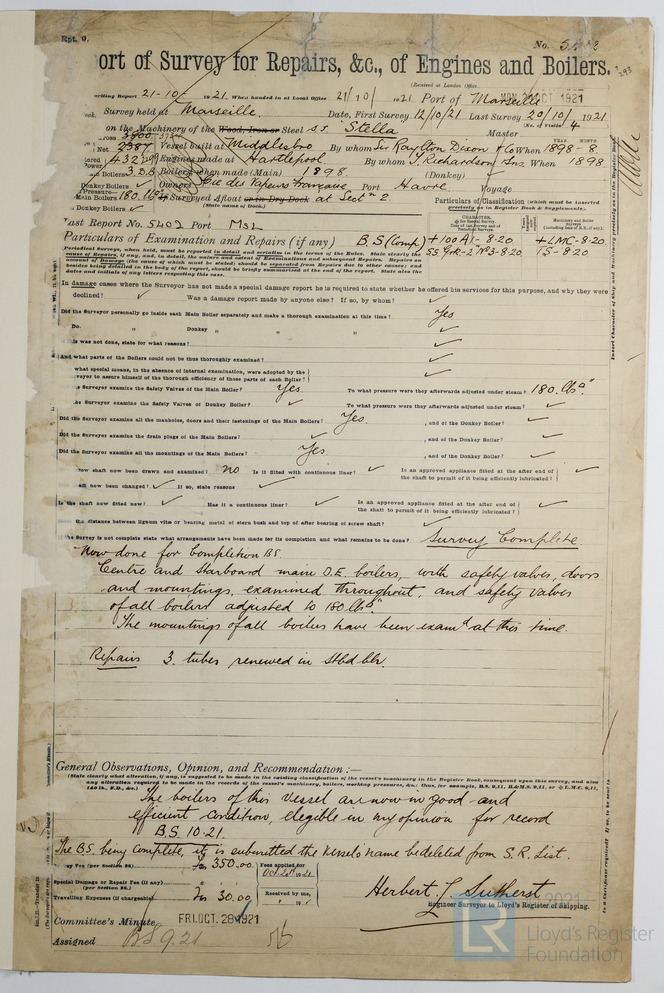 Rpt. 9.
No. 5
ort of Survey for Repairs, &c., of Engines and Boilers.
(Received at London Office
writing Report 21-10- 1921. When handed in at Local Office 21/10/ 1921 Port of Marseille
MON. OCT 1921
Survey held at Marseille. Date, First Survey 12/10/21 Last Survey 20/10/1921
(No. of Visits 4
on the Machinery of the Wood, Iron or Steel s.s. Stella Master
Net 2387 Vessel built at Middlesbro By whom Sir Raylton Dixon & Co When 1898-8
432 Engines made at Hartlepool By whom T. Richardson & Sons When 1898
Boilers, when made (Main) 1898. (Donkey)
Donkey Boilers ✓ Owners Cie des Vapeurs Francaise Port Havre. Voyage
Main Boilers 180 lbs Surveyed Afloat or in Dry Dock at Sect 2
(State name of Dock.)
Donkey Boilers ✓
Particulars of Classification (which must be inserted precisely as in Register Book & Supplements).
Last Report No. 5402 Port MSL
Particulars of Examination and Repairs (if any) B.S (Comp)
+100A1- 8.20
+LMC-8.20
TS- 8.20
In damage cases where the Surveyor has not made a special damage report he is required to state whether he offered his services for this purpose, and why they were
declined? ✓ Was a damage report made by anyone else? If so, by whom? ✓
Did the Surveyor personally go inside each Main Boiler separately and make a thorough examination at this time? Yes
Do. „ Donkey „ „ „ ✓
this was not done, state for what reasons? ✓
And what parts of the Boilers could not be thus thoroughly examined? ✓
what special means, in the absence of internal examination, were adopted by the
veyor to assure himself of the thorough efficiency of those parts of each Boiler? ✓
the Surveyor examine the Safety Valves of the Main Boiler? Yes. To what pressure were they afterwards adjusted under steam? 180 lbs
the Surveyor examine the Safety Valves of Donkey Boiler? ✓ To what pressure were they afterwards adjusted under steam? ✓
Did the Surveyor examine all the manholes, doors and their fastenings of the Main Boilers? Yes. , and of the Donkey Boiler? ✓
Did the Surveyor examine the drain plugs of the Main Boilers? ✓ , and of the Donkey Boiler? ✓
Did the Surveyor examine all the mountings of the Main Boilers? Yes , and of the Donkey Boiler? ✓
screw shaft now been drawn and examined? no Is it fitted with continuous liner? ✓ Is an approved appliance fitted at the after end of
the shaft to permit of it being efficiently lubricated? ✓
aft now been changed? ✓ If so, state reasons ✓
Is the shaft now fitted new? ✓ Has it a continuous liner? ✓ Is an approved appliance fitted at the after end of
the shaft to permit of it being efficiently lubricated? ✓
the distance between lignum vitæ or bearing metal of stern bush and top of after bearing of screw shaft? ✓
the Survey is not complete state what arrangements have been made for its completion and what remains to be done? Survey Complete
Now done for Completion BS.
Centre and Starboard main D.E. boilers, with safety valves, doors
and mountings, examined throughout, and safety valves
of all boilers adjusted to 180 lbs
The mountings of all boilers have been examd at this time.
Repairs 3. tubes renewed in Stbd blr.
General Observations, Opinion, and Recommendation:—
(State clearly what alteration, if any, is suggested to be made in the existing classification of the vessel's machinery in the Register Book, consequent upon this survey, and also
any alteration required to be made in the records of the vessel's machinery, boilers, working pressures, &c.: thus, for example, B.S. 9,11, B.&M.S. 9,11, or L.M.C. 9,11,
140 lb., F.D., &c.)
The boilers of this vessel are now in good and
efficient condition, elegible in my opinion for record
B.S. 10.21.
The B.S. being Complete, it is submitted the vessels name be deleted from S.R. List.
ey Fee (per Section 28.) 350.00 Fees applied for
Oct 21st 1921
Special Damage or Repair Fee (if any)
(per Section 28.)
Received by me,
Travelling Expenses (if chargeable) 30.00
Herbert L Sutherst
Engineer Surveyor to Lloyd's Register of Shipping.
Committee's Minute FRI. OCT. 28 1921
Assigned BS 9.21
© 2021
LR
Lloyd's Register
Foundation